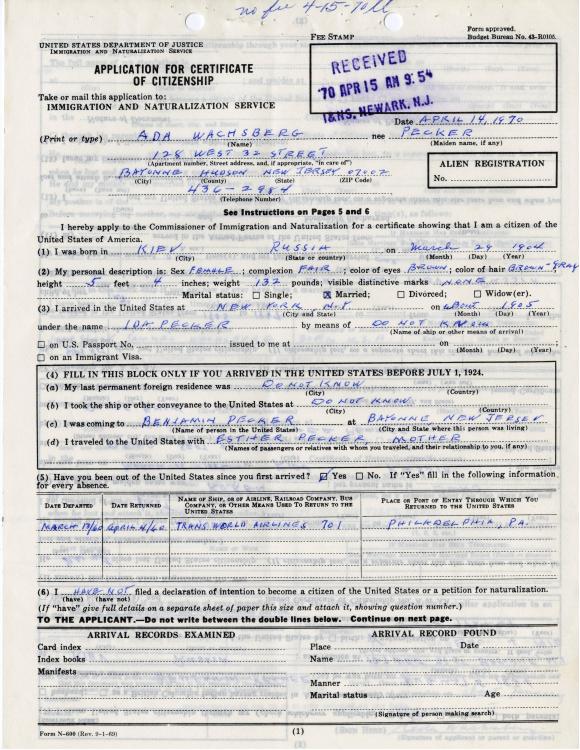 no fee 4-15-70
Form approved.
Budget Bureau No. 43-R0105.
FEE STAMP
UNITED STATES DEPARTMENT OF JUSTICE
IMMIGRATION AND NATURALIZATION SERVICE
APPLICATION FOR CERTIFICATE
OF CITIZENSHIP
RECEIVED
'70 APR 15 AM 9:54
I&NS. NEWARK, N.J.
Take or mail this application to:
IMMIGRATION AND NATURALIZATION SERVICE
Date APRIL 14, 1970
(Print or type) ADA WACHSBERG nee PECKER
(Name) (Maiden name, if any)
128 WEST 32 STREET
(Apartment number, Street address, and, if appropriate, "in care of")
BAYONNE HUDSON NEW JERSEY 07002
(City) (County) (State) (ZIP Code)
436-2984
(Telephone Number)
ALIEN REGISTRATION
No.
See Instructions on Pages 5 and 6
I hereby apply to the Commissioner of Immigration and Naturalization for a certificate showing that I am a citizen of the
United States of America.
(1) I was born in KIEV RUSSIA on March 29 1904
(City) (State or country) (Month) (Day) (Year)
(2) My personal description is: Sex FEMALE; complexion FAIR; color of eyes BROWN; color of hair BROWN-GRAY
height 5 feet 4 inches; weight 132 pounds; visible distinctive marks NONE
Marital status: Single; Married; Divorced; Widow(er).
(3) I arrived in the United States at NEW YORK, N.Y on about 1905
(City and State) (Month) (Day) (Year)
under the name IDA PECKER by means of DO NOT KNOW
(Name of ship or other means of arrival)
on U.S. Passport No. issued to me at on ;
(Month) (Day) (Year)
on an Immigrant Visa.
(4) FILL IN THIS BLOCK ONLY IF YOU ARRIVED IN THE UNITED STATES BEFORE JULY 1, 1924.
(a) My last permanent foreign residence was DO NOT KNOW
(City) (Country)
(b) I took the ship or other conveyance to the United States at DO NOT KNOW
(City) (Country)
(c) I was coming to BENJAMIN PECKER at BAYONNE NEW JERSEY
(Name of person in the United States) (City and State where this person was living)
(d) I traveled to the United States with ESTHER PECKER, MOTHER
(Names of passengers or relatives with whom you traveled, and their relationship to you, if any)
(5) Have you been out of the United States since you first arrived? Yes No. If "Yes" fill in the following information
for every absence.
DATE DEPARTED DATE RETURNED NAME OF SHIP, OR OF AIRLINE, RAILROAD COMPANY, BUS COMPANY, OR OTHER MEANS USED TO RETURN TO THE UNITED STATES PLACE OR PORT OF ENTRY THROUGH WHICH YOU RETURNED TO THE UNITED STATES
TRANS WORLD AIRLINES 701 PHILADELPHIA, PA.
(6) I HAVE NOT filed a declaration of intention to become a citizen of the United States or a petition for naturalization.
(have) (have not)
(If "have" give full details on a separate sheet of paper this size and attach it, showing question number.)
TO THE APPLICANT.—Do not write between the double lines below. Continue on next page.
ARRIVAL RECORDS EXAMINED ARRIVAL RECORD FOUND
Card index Place Date
Index books Name
Manifests
Manner
Marital status Age
(Signature of person making search)
Form N-600 (Rev. 9-1-69) (1)